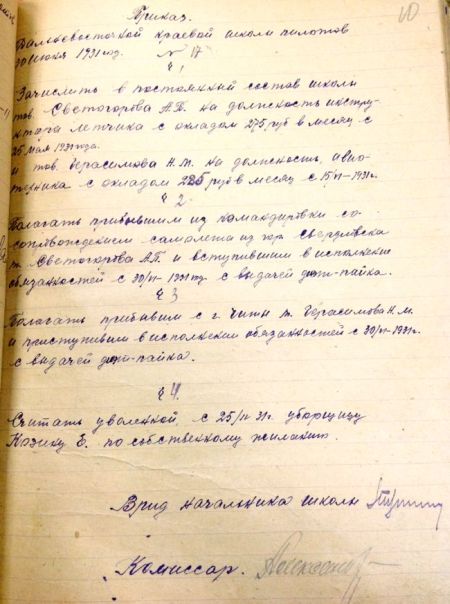 10
Приказ.
Дальневосточной краевой школы пилотов
30 июня 1931 год. № 17
§ 1
Зачислить в постоянный состав школы
тов. Светогорова А.П. на должность инстру-
ктора летчика с окладом 275 руб в месяц с
25 мая 1931 года.
и тов. Герасимова Н.М. на должность авио-
техника с окладом 225 руб в месяц с 15/VI-1931г.
§ 2
Полагать прибывшим из командировки со-
сопровождением самолета из гор. Свердловска
т. Светогорова А.П и вступившим в исполнение
обязанностей с 30/VI-1931 год с выдачей доп-пайка.
§ 3
Полагать прибывшим с г. Читы т. Герасимова Н.М.
и приступившим в исполнение обязанностей с 30/VI-1931г.
с выдачей доп-пайка.
§ 4
Считать уволенной, с 25/VI 31г. уборщицу
Козику Е. по собственному желанию.
Врид начальника школы
Комиссар.